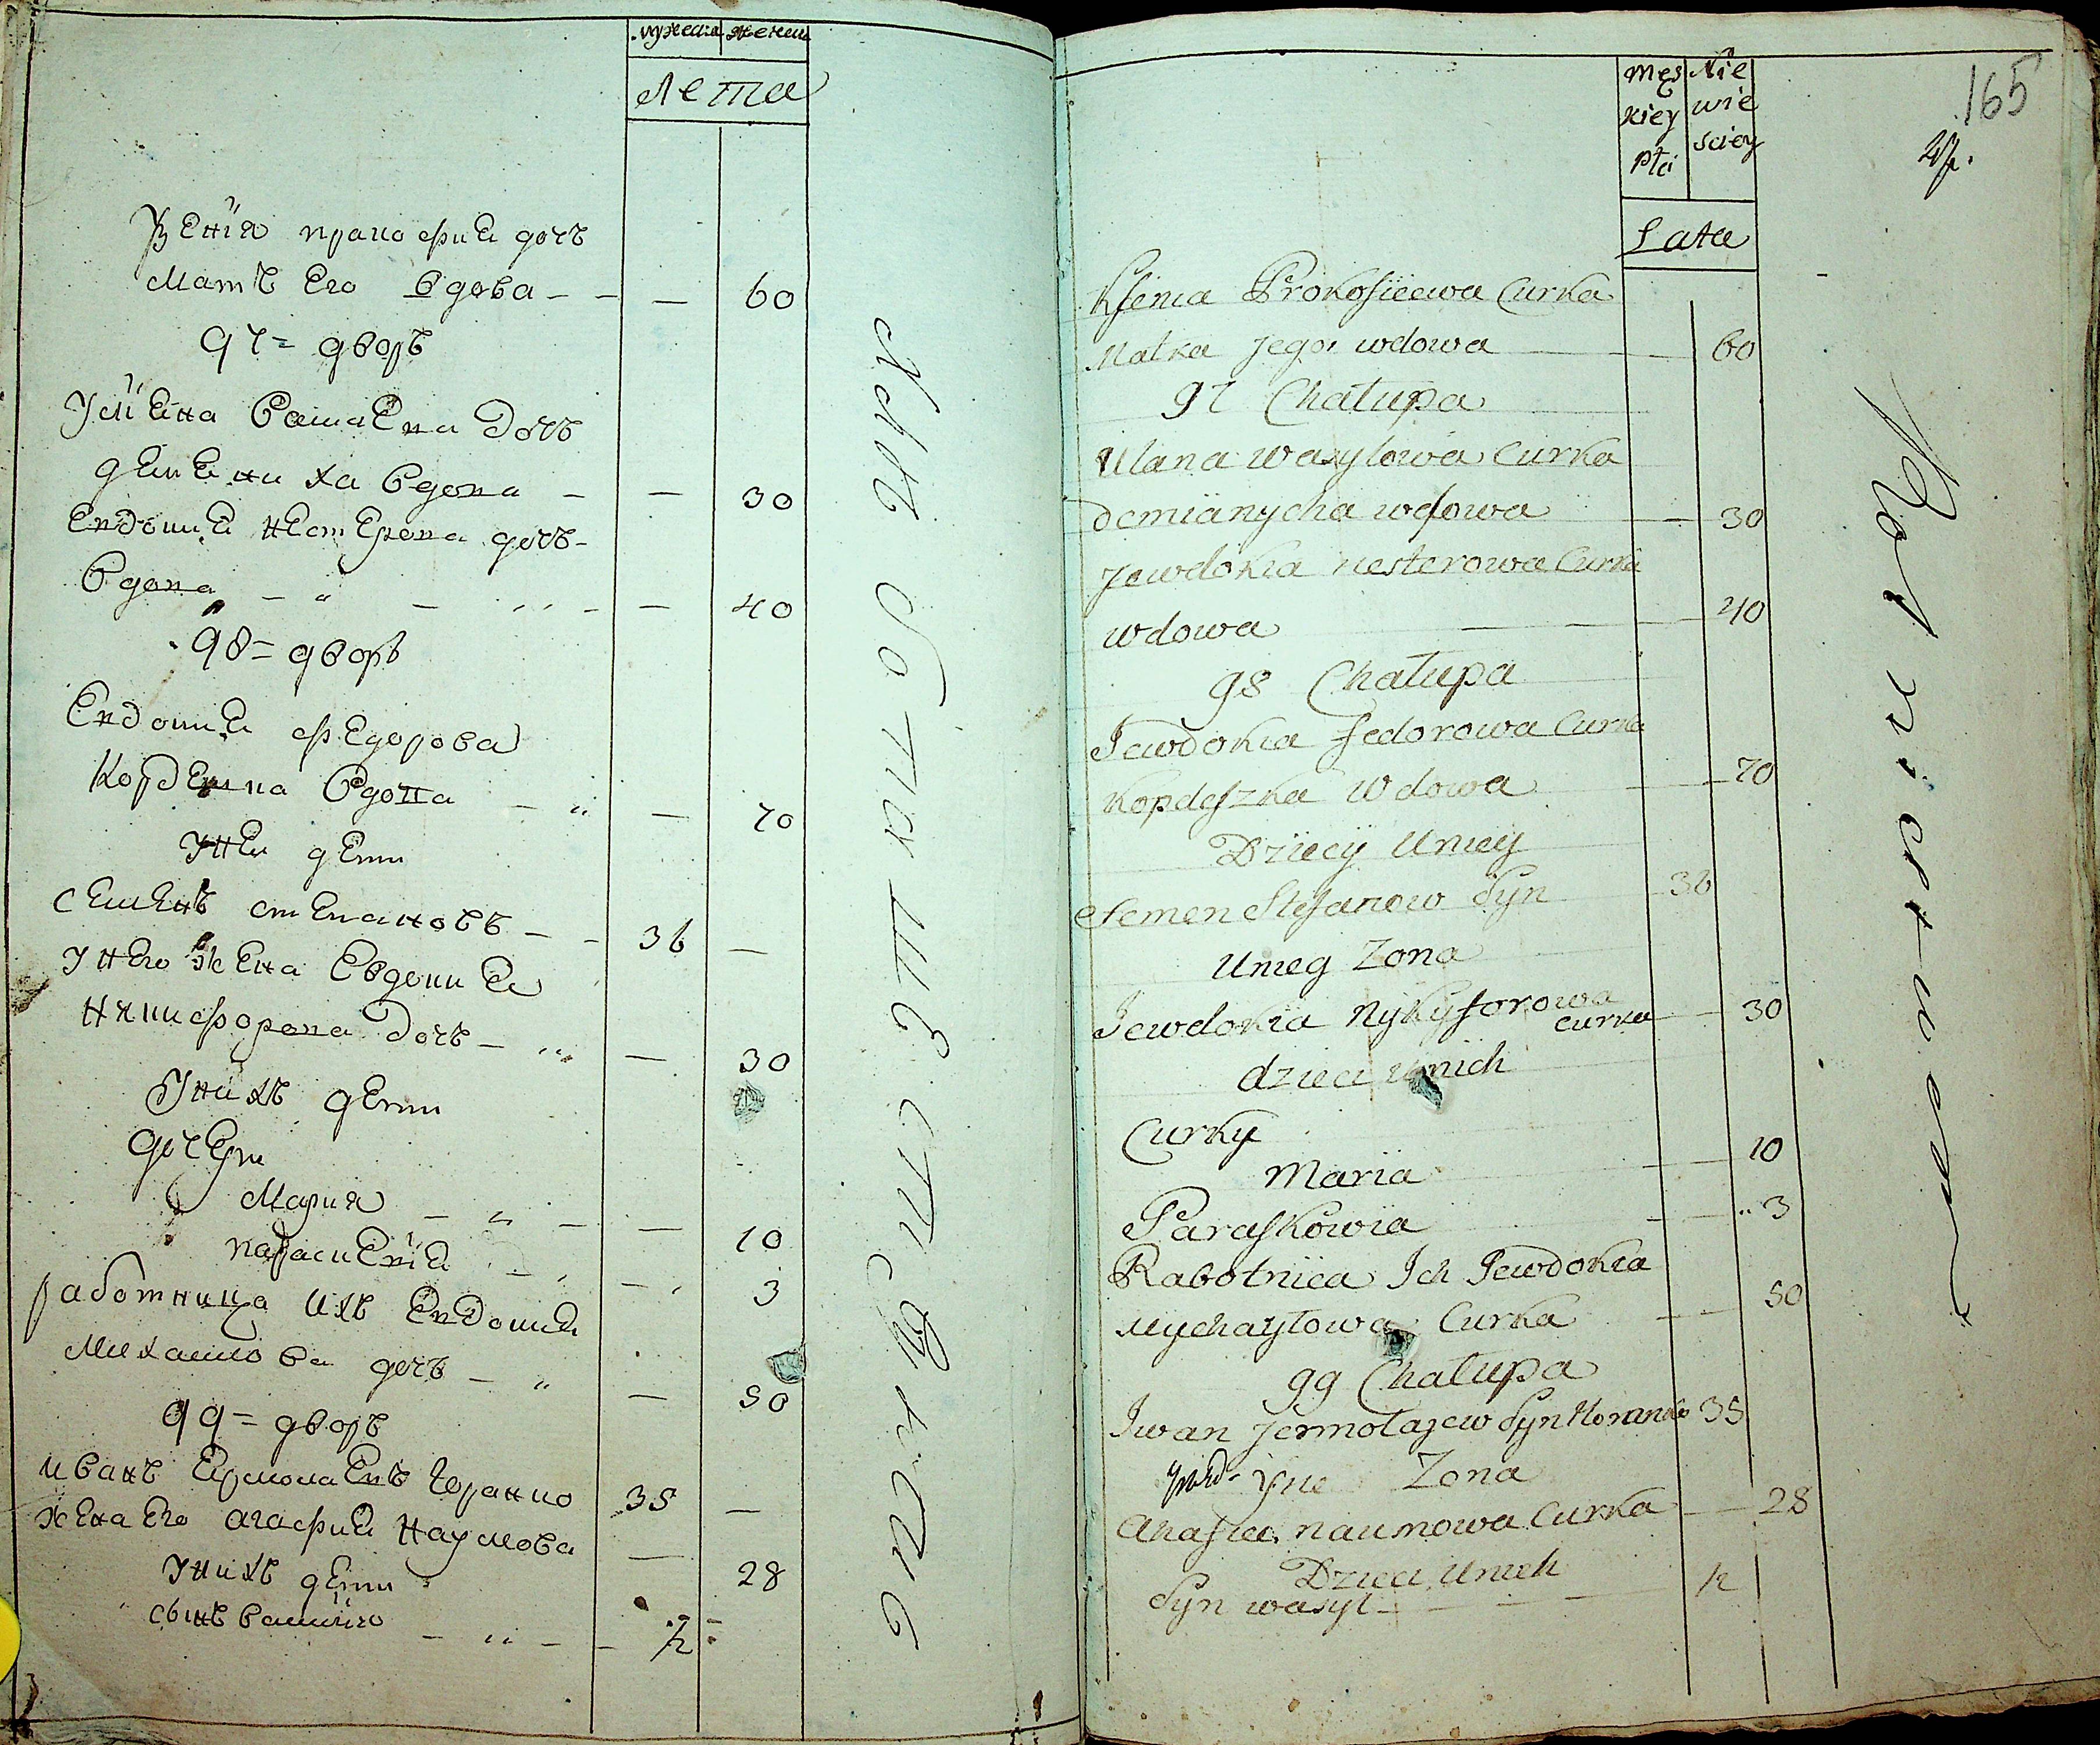 мужеска женска
Лета
Ѯенія прокофиева дочь
Мать Его вдова — — — 60
97 = дворъ
Уліяна Василева дочь
демяниха вдова — — 30
Евдокия Нестерова дочь —
вдова — — — — 40
98 = дворъ
Евдокия Федорова
вдова — — 70
У Нея дети
Семенъ степановъ — — 36 —
У Него жена Евдокия
Никифорова дочь — — 30
У нихъ дети
дочери
Мария — — — 10
параскевія — — 3
работница ихъ Евдокия
Михайлова дочь — — 50
99 = дворъ
иванъ Ермолаевъ Горанко 35 —
жена Его агафия Наумова — 28
У нихъ дети
сынъ василіи — — — ½ —
męs kiey płci
Nie wie sciey
165
Lata
Ksenia Prokofiiewa Curka
Matka Jego wdowa — — 60
97 Chałupa
Ulana wasylowa Curka
demianycha wdowa — 30
Jewdokia nesterowa Curka
wdowa — — — 40
98 Chałupa
Jewdokia Fedorowa Curka
Kopdeszka Wdowa — — 70
Dziecy Uniey
Semen Stefanow Syn — 36
Unieg Zona
Jewdokia Nykyforowa curka — — 30
dzieci unich
Curky
Maria — — 10
Paraskowia — — 3
Rabotnica Ich Jewdokia
Mychayłowa Curka — — 50
99 Chałupa
Iwan Jermołajew Syn Horanko 35
Zona
Ahafia naumowa Curka — — 28
Dzieci Unich
Syn wasyl — — — ½